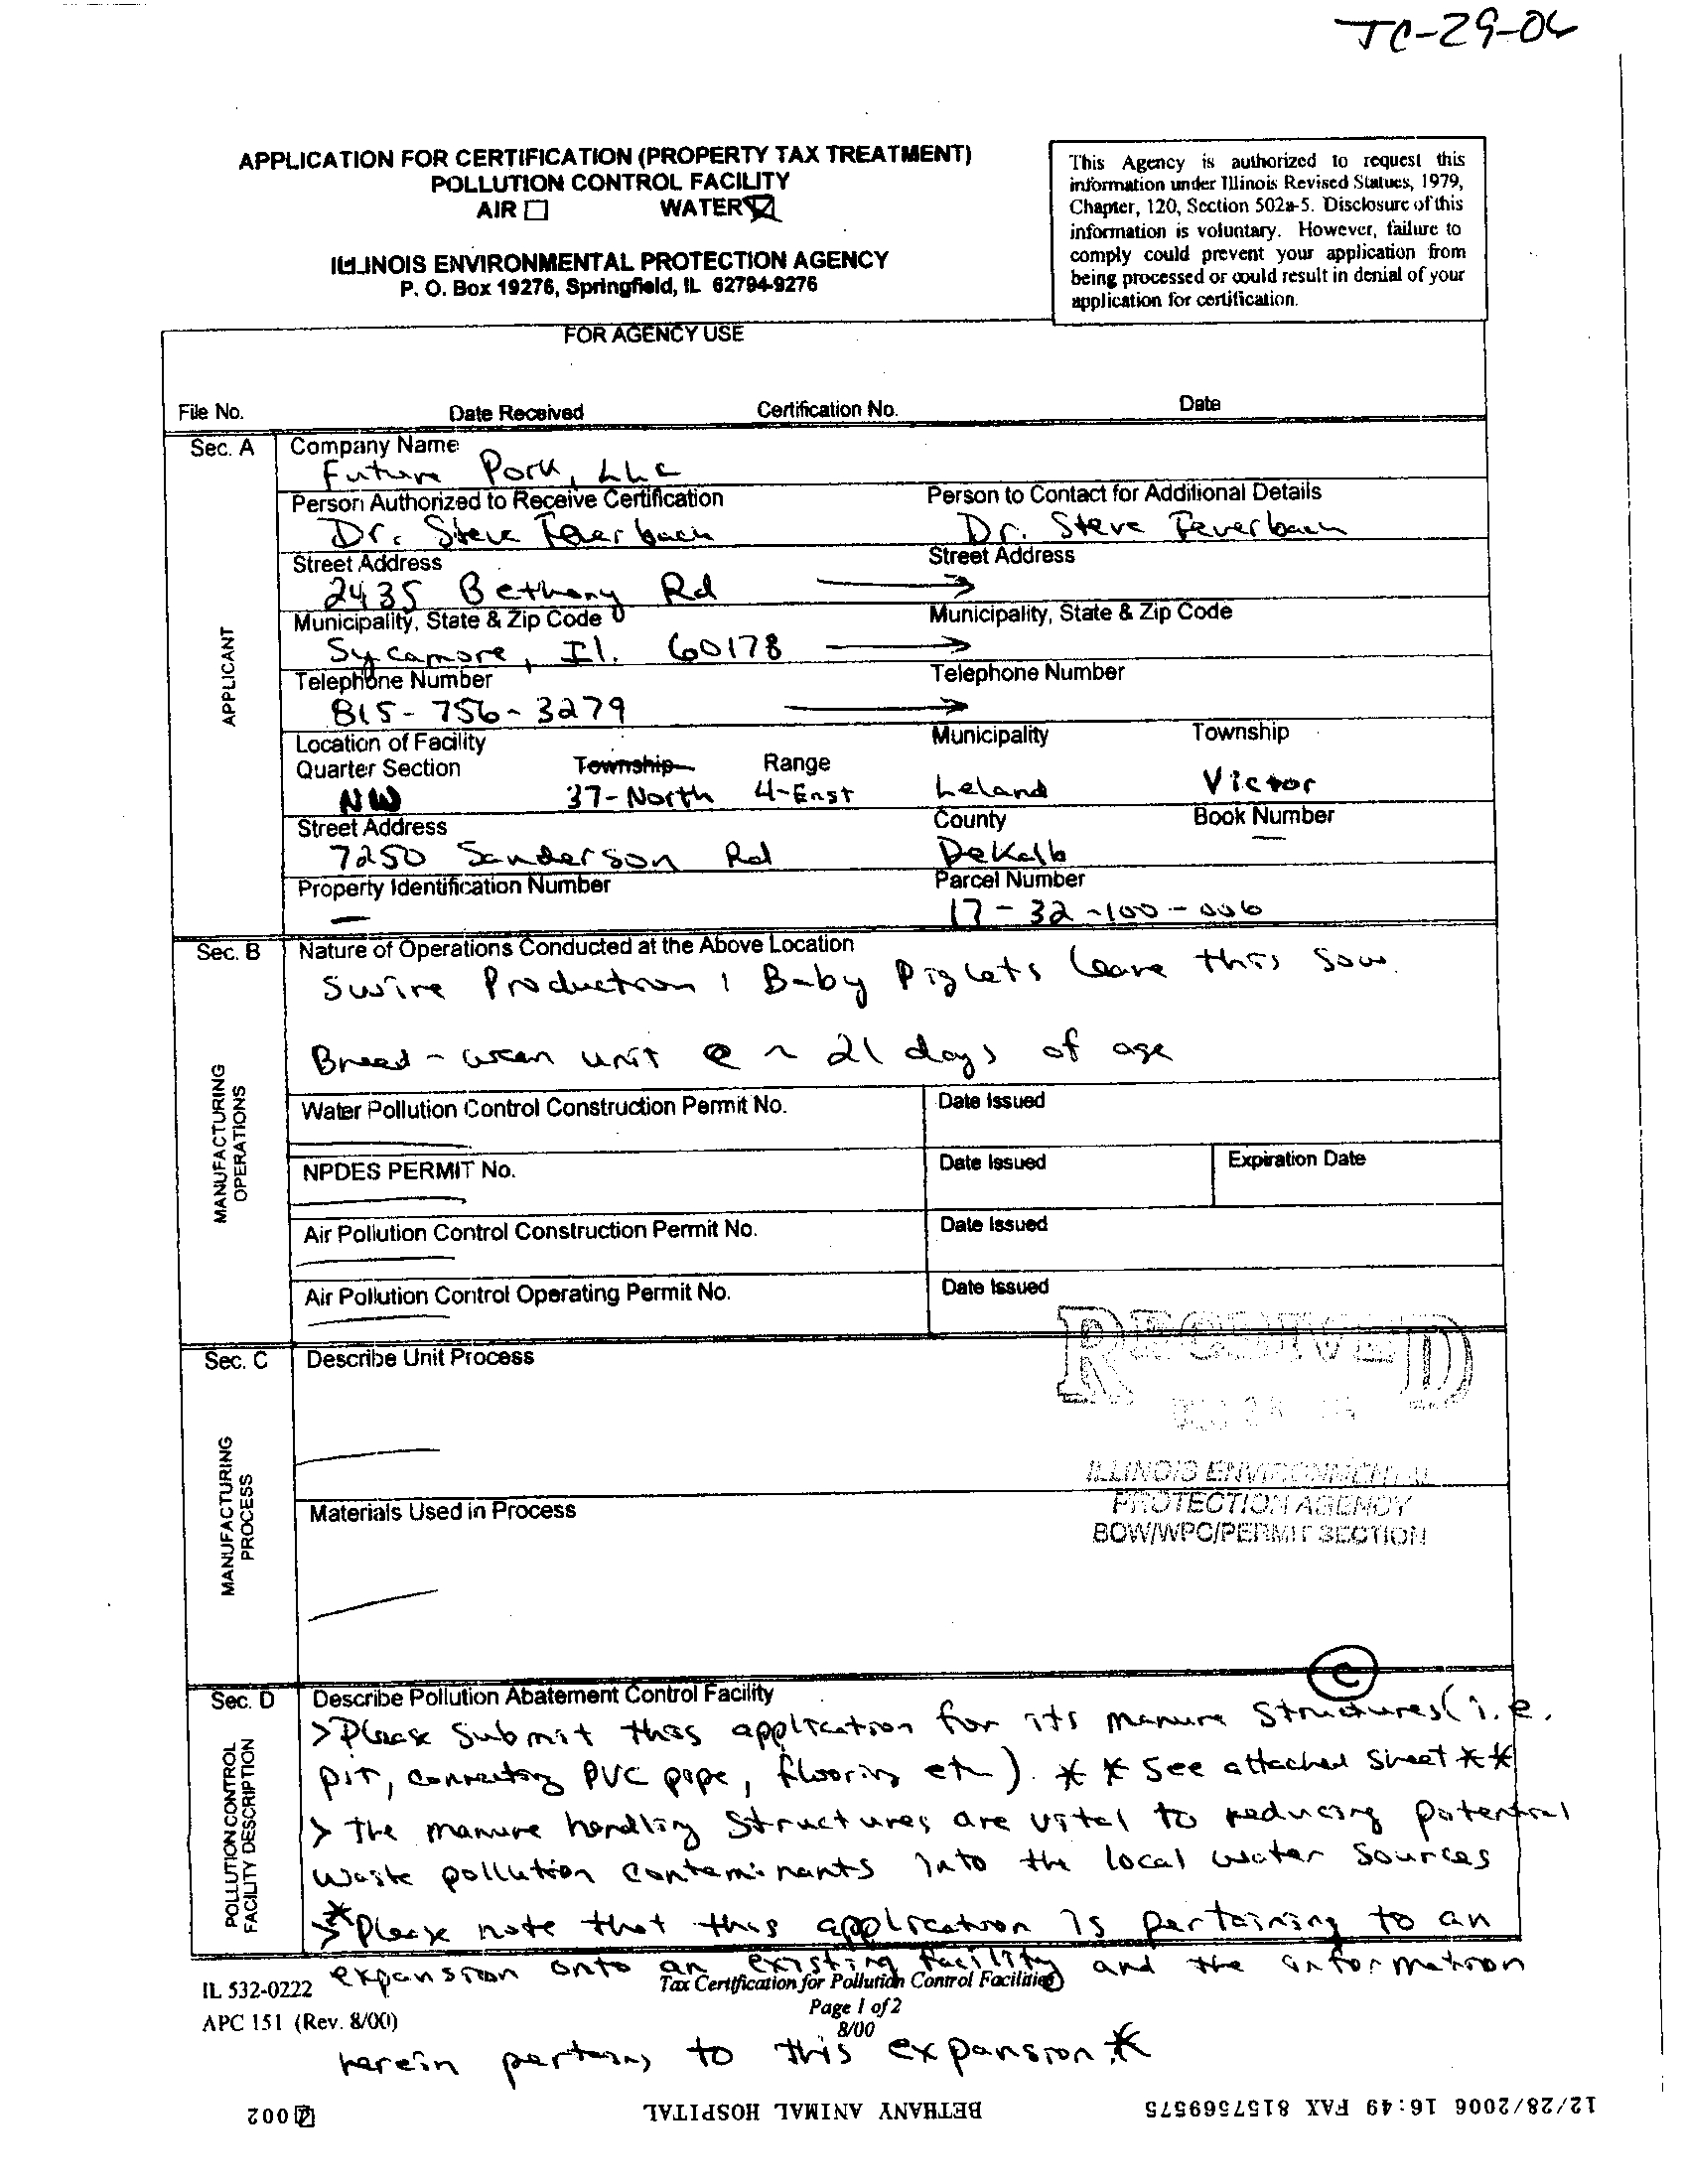 TC-29-06
APPLICATION FOR CERTIFICATION (PROPERTY TAX TREATMENT)
POLLUTION CONTROL FACILITY
AIR WATER
ILLINOIS ENVIRONMENTAL PROTECTION AGENCY
P. O. Box 19276, Springfield, IL 62794-9276
This Agency is authorized to request this
information under Illinois Revised Statues, 1979,
Chapter, 120, Section 502a-5. Disclosure of this
information is voluntary. However, failure to
comply could prevent your application from
being processed or could result in denial of your
application for certification.
FOR AGENCY USE
File No. Date Received Certification No. Date
Sec. A Company Name
Future Pork, LLC
Person Authorized to Receive Certification Person to Contact for Additional Details
Dr. Steve Feuerbach Dr. Steve Feuerbach
Street Address Street Address
2435 Bethany Rd →
Municipality, State & Zip Code Municipality, State & Zip Code
Sycamore, Il. 60178 →
Telephone Number Telephone Number
815-756-3279 →
APPLICANT
Location of Facility Municipality Township
Quarter Section Township Range
NW 37-North 4-East Leland Victor
Street Address County Book Number
7250 Sanderson Rd DeKalb —
Property Identification Number Parcel Number
— 17-32-100-006
Sec. B Nature of Operations Conducted at the Above Location
Swine Production; Baby Piglets leave this sow
Breed-wean unit @ ~ 21 days of age
MANUFACTURING
OPERATIONS
Water Pollution Control Construction Permit No. Date Issued
NPDES PERMIT No. Date Issued Expiration Date
Air Pollution Control Construction Permit No. Date Issued
Air Pollution Control Operating Permit No. Date Issued
RECEIVED
Sec. C Describe Unit Process
ILLINOIS ENVIRONMENTAL
PROTECTION AGENCY
BOW/WPC/PERMIT SECTION
MANUFACTURING
PROCESS
Materials Used in Process
C
Sec. D Describe Pollution Abatement Control Facility
> Please submit this application for its manure structures (i.e.
pit, connecting PVC pipe, flooring etc). ** See attached sheet **
> The manure handling structures are vital to reducing potential
waste pollution contaminants into the local water sources
>* Please note that this application is pertaining to an
expansion onto an existing facility and the information
herein pertains to this expansion.*
POLLUTION CONTROL
FACILITY DESCRIPTION
IL 532-0222
APC 151 (Rev. 8/00)
Tax Certification for Pollution Control Facilities
Page 1 of 2
8/00
12/28/2006 16:49 FAX 8157569575 BETHANY ANIMAL HOSPITAL 002